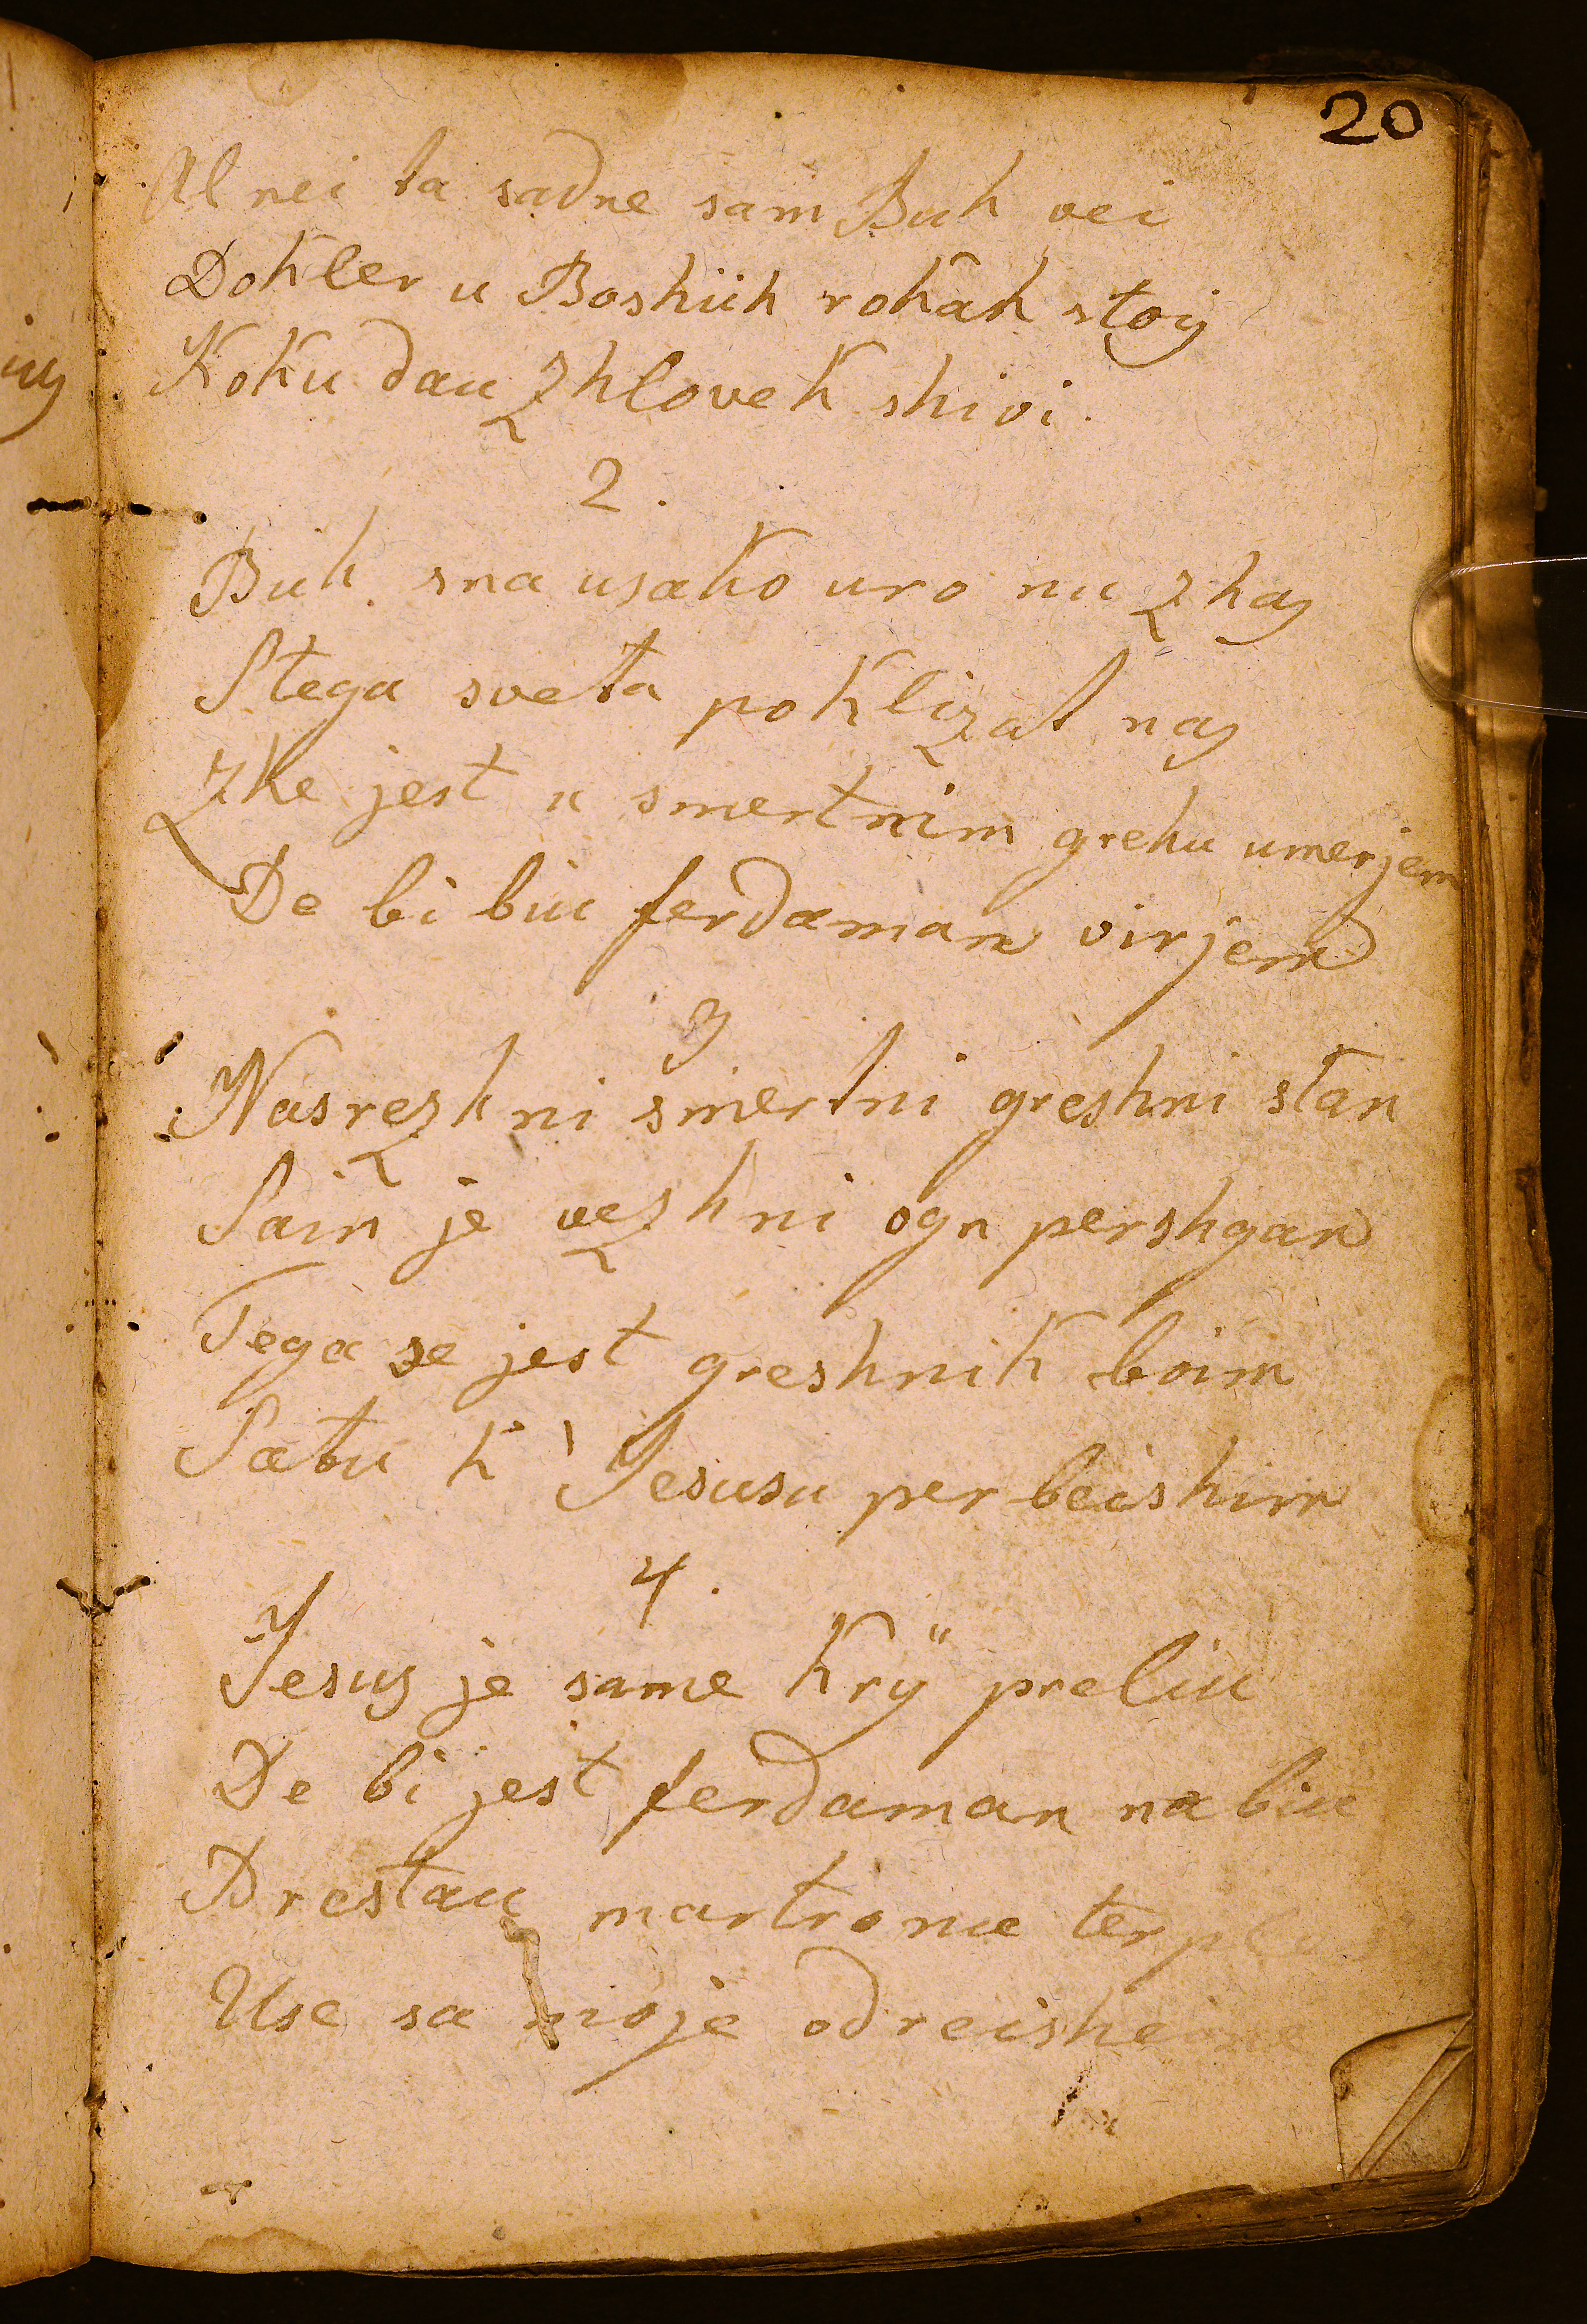 20
Al nei ta sadne sam Buh vei
Dokler u Boshiih rokah stoij
Koku dau Zhlovek shivi.
2.
Buh sna usako uro nu zhas
Stega sveta poklizat nas
Zhe jest u smertnim grehu umerjem
De bi biu ferdaman virjem
3
Nasrezhni smertni greshni stan
Sain je vezhni ogn pershgan
Tega se jest greshnik boim
Satu k' Jesusu per beishim
4.
Jesus je same kry preliu
De bi jest ferdaman na biu
Brestau martro nu
Use sa moje odreishe